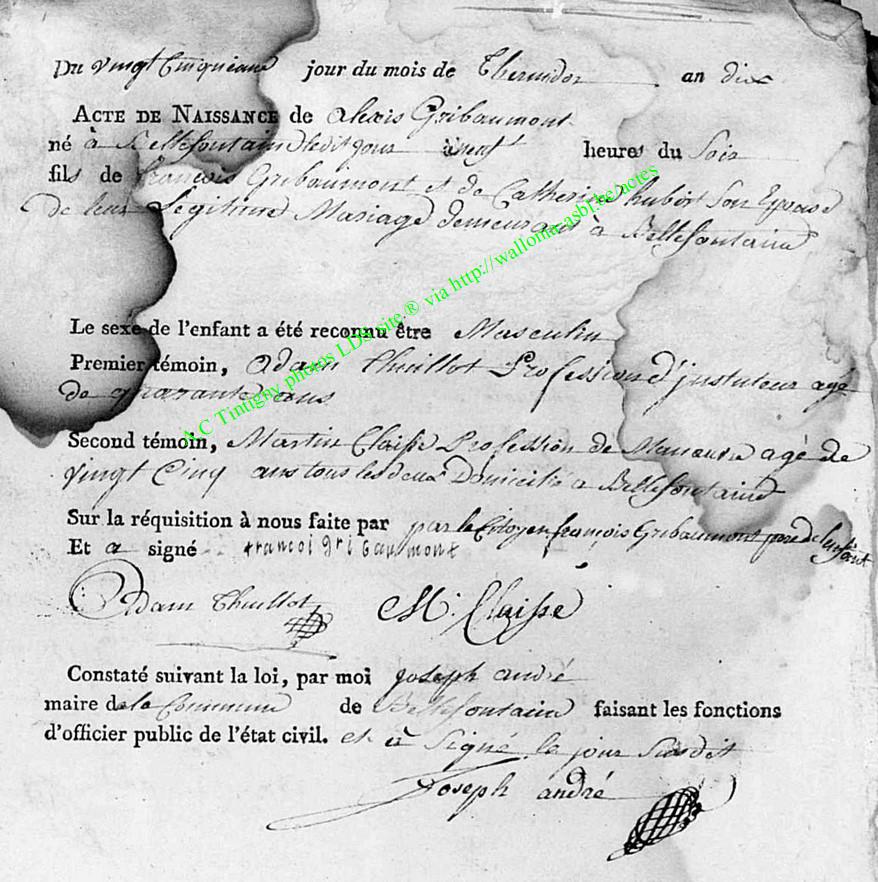 Du vingt Cinquieme jour du mois de Thermidor an dix
ACTE DE NAISSANCE de alexis Gribaumont
né à Bellefontaine ledit jour à neuf heures du Soir
fils de francois Gribaumont et de Catherine hubert Son Epouse
de leur Legitime Mariage demeurant à Bellefontaine
Le sexe de l'enfant a été reconnu être Masculin
Premier témoin, Adam Thuillot Profession d'instuteur agé
de quarante ans
Second témoin, Martin Claisse Profession de Manœuvre agé de
vingt Cinq ans tous les deux Domicilié a Bellefontaine
Sur la réquisition à nous faite par par le Citoyen françois Gribaumont pere de l'enfant
Et a signé francoi gribaumont
Adam Thuillot M. Claisse
Constaté suivant la loi, par moi joseph andré
maire de la Commune de Bellefontaine faisant les fonctions
d'officier public de l'état civil. et à Signé le jour Susdit
Joseph andré
A.C Tintigny photos LDS site ® via http://wallonia-asbl.be/actes